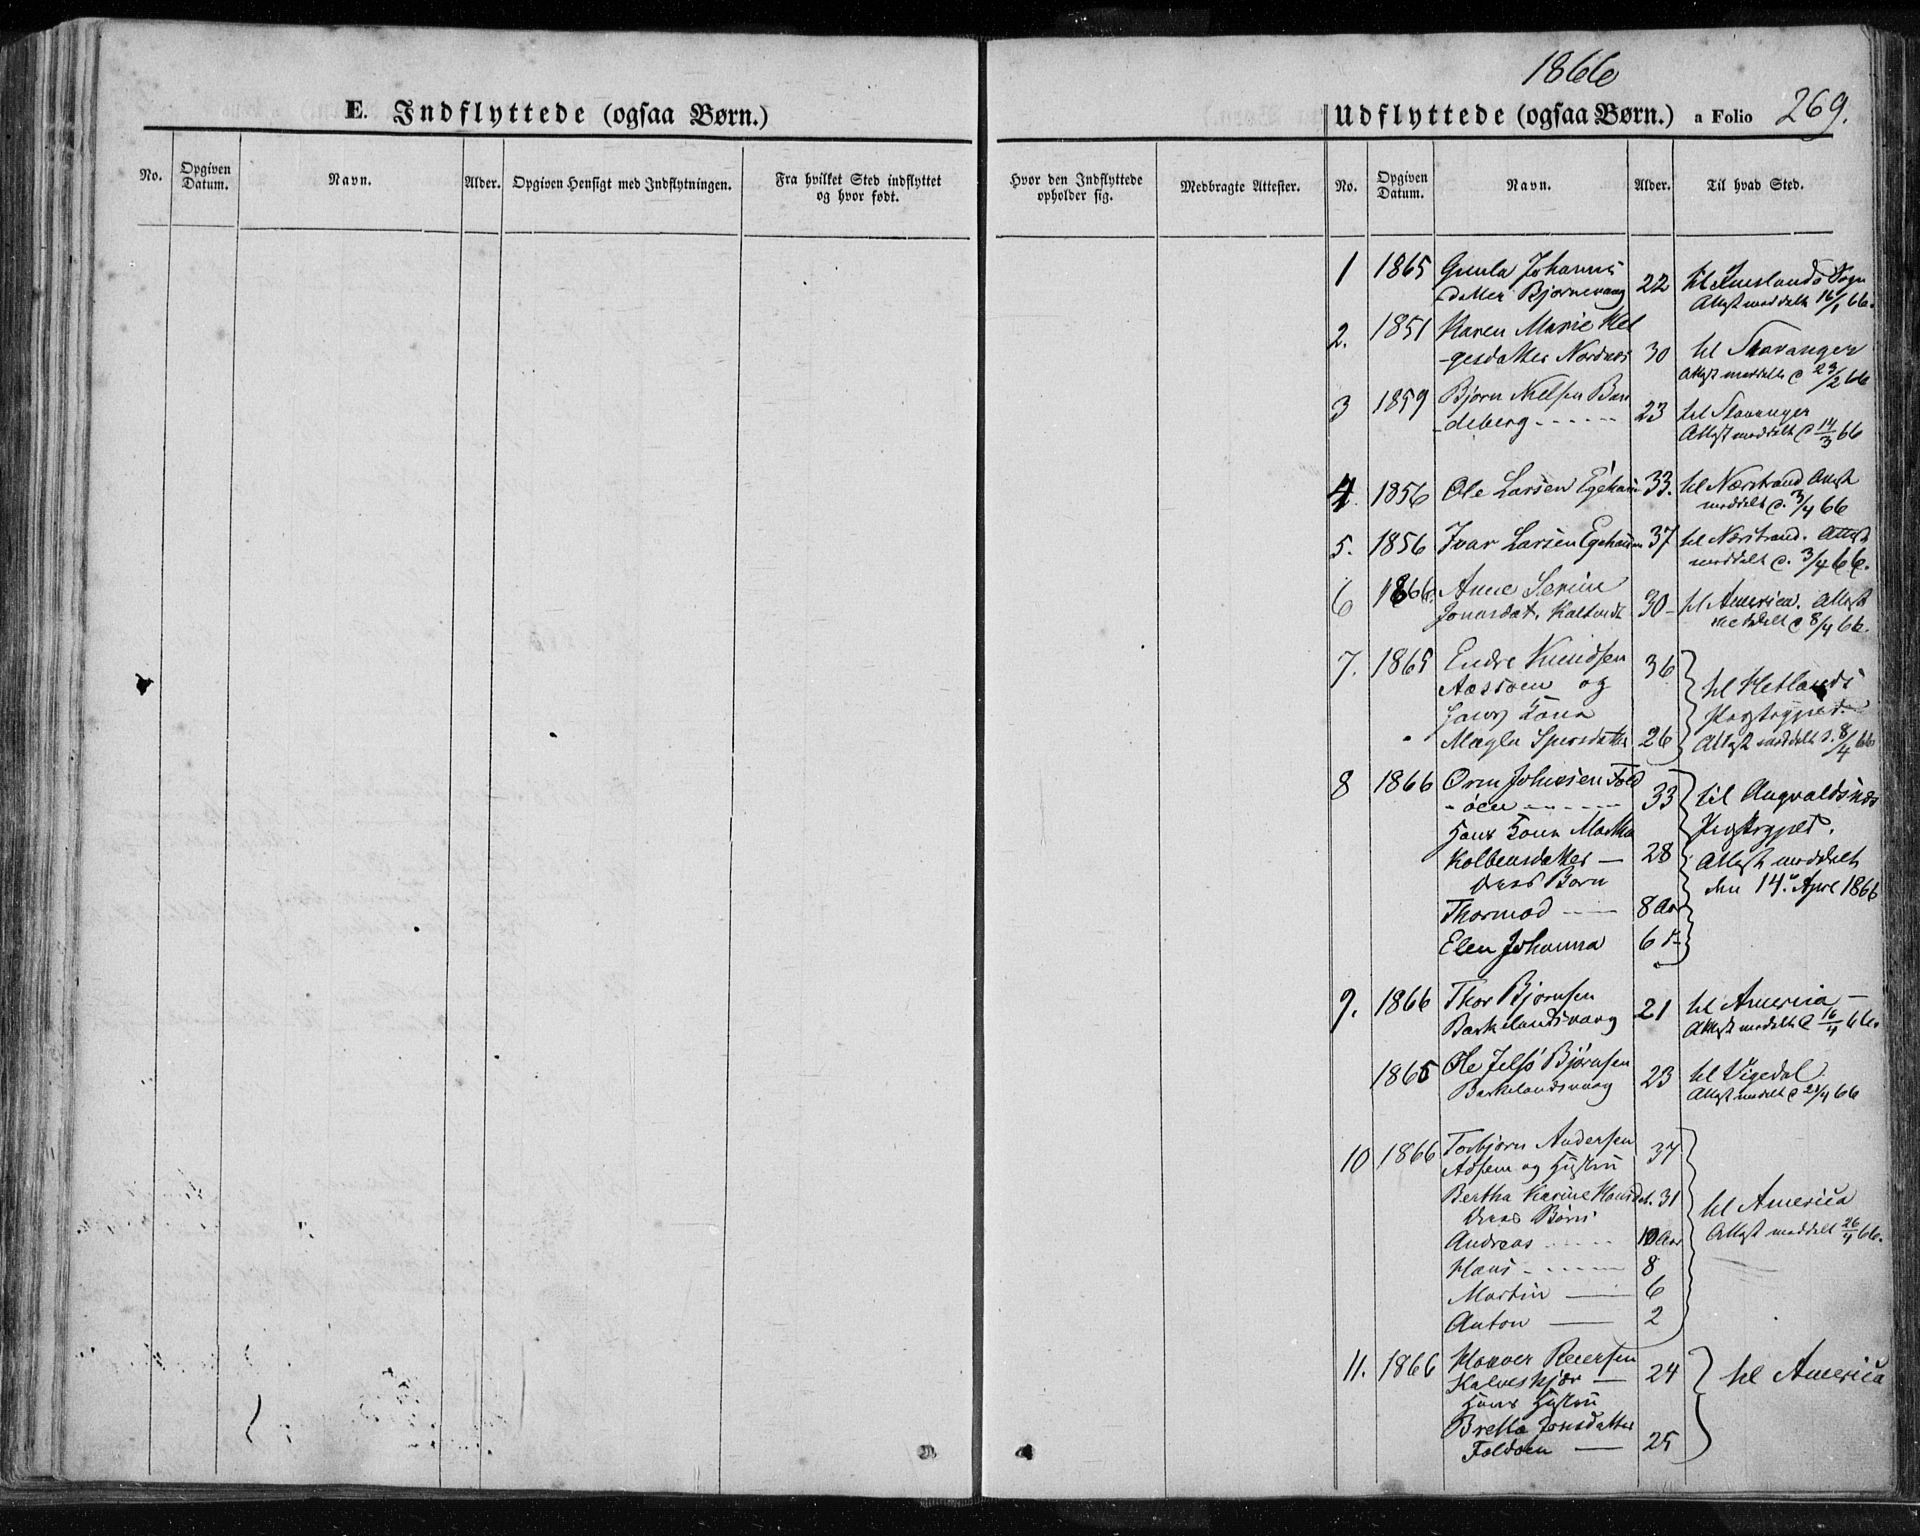 1866
E. Indflyttede (ogsaa Børn.)
Udflyttede (ogsaa Børn.) a Folio 269.
No. Opgiven Datum. Navn. Alder. Opgiven Hensigt med Indflytningen. Fra hvilket Sted indflyttet og hvor født. Hvor den Indflyttede opholder sig. Medbragte Attester. No. Opgiven Datum. Navn. Alder. Til hvad Sted.
1 1865 Gunla Johannis
datter Bjørnevaag 22 til Imslands Sogn
Attest meddelt 16/1 66.
2. 1851 Karen Marie Hel
-gesdatter Nordnes 30 til Stavanger
Attest meddelt d 23/2 66
3 1859 Bjørn Nielsen Ban
-deberg 23 til Stavanger
Attest meddelt d 14/3 66
4 1856 Ole Larsen Egehaun 33. til Nærstrand Attest
meddelt d. 3/4 66
5. 1856 Ivar Larsen Egehaun 37 til Nærstrand. Attest
meddelt d. 3/4 66.
6 1866. Anne Serine
Jonasdat. Kaltvedt 30- til America. Attest
meddelt d 8/4 66.
7. 1865 Endre Knudsen 36
og til Hetlands
Hans Kona Præstegjeld.
Magla Sjursdatter 26 Attest meddelt d. 8/4 66
8 1866 Orm Johnsen Fold
-øen 33 til Augvaldsnæs
Hans Kona Martha Præstegjeld.
Kolbensdatter — 28 Attest meddelt
deres Børn den 14. April 1866
Thormod — 8 Aar
Elen Johanna 6 d-
9. 1866 Thor Bjørnsen
Barkelandsvaag 21 til America —
Attest meddelt d 16/4 66.
1865 Ole Jelsø Bjørnsen
Barkelandsvaag 23 til Vigedal
Attest meddelt d 21/4 66
10 1866 Torbjørn Andersen 37
og Hustru
Bertha Karine Hansdat. 31 til America
deres Børn Attest meddelt 26/4 66.
Andreas 10 Aar
Hans 8
Martin — 6
Anton — 2
11. 1866 Halvor Reiersen 24 til America
Kalveskjær —
Hans Hustru
Bretta Jonsdatter
Foldøen — 25